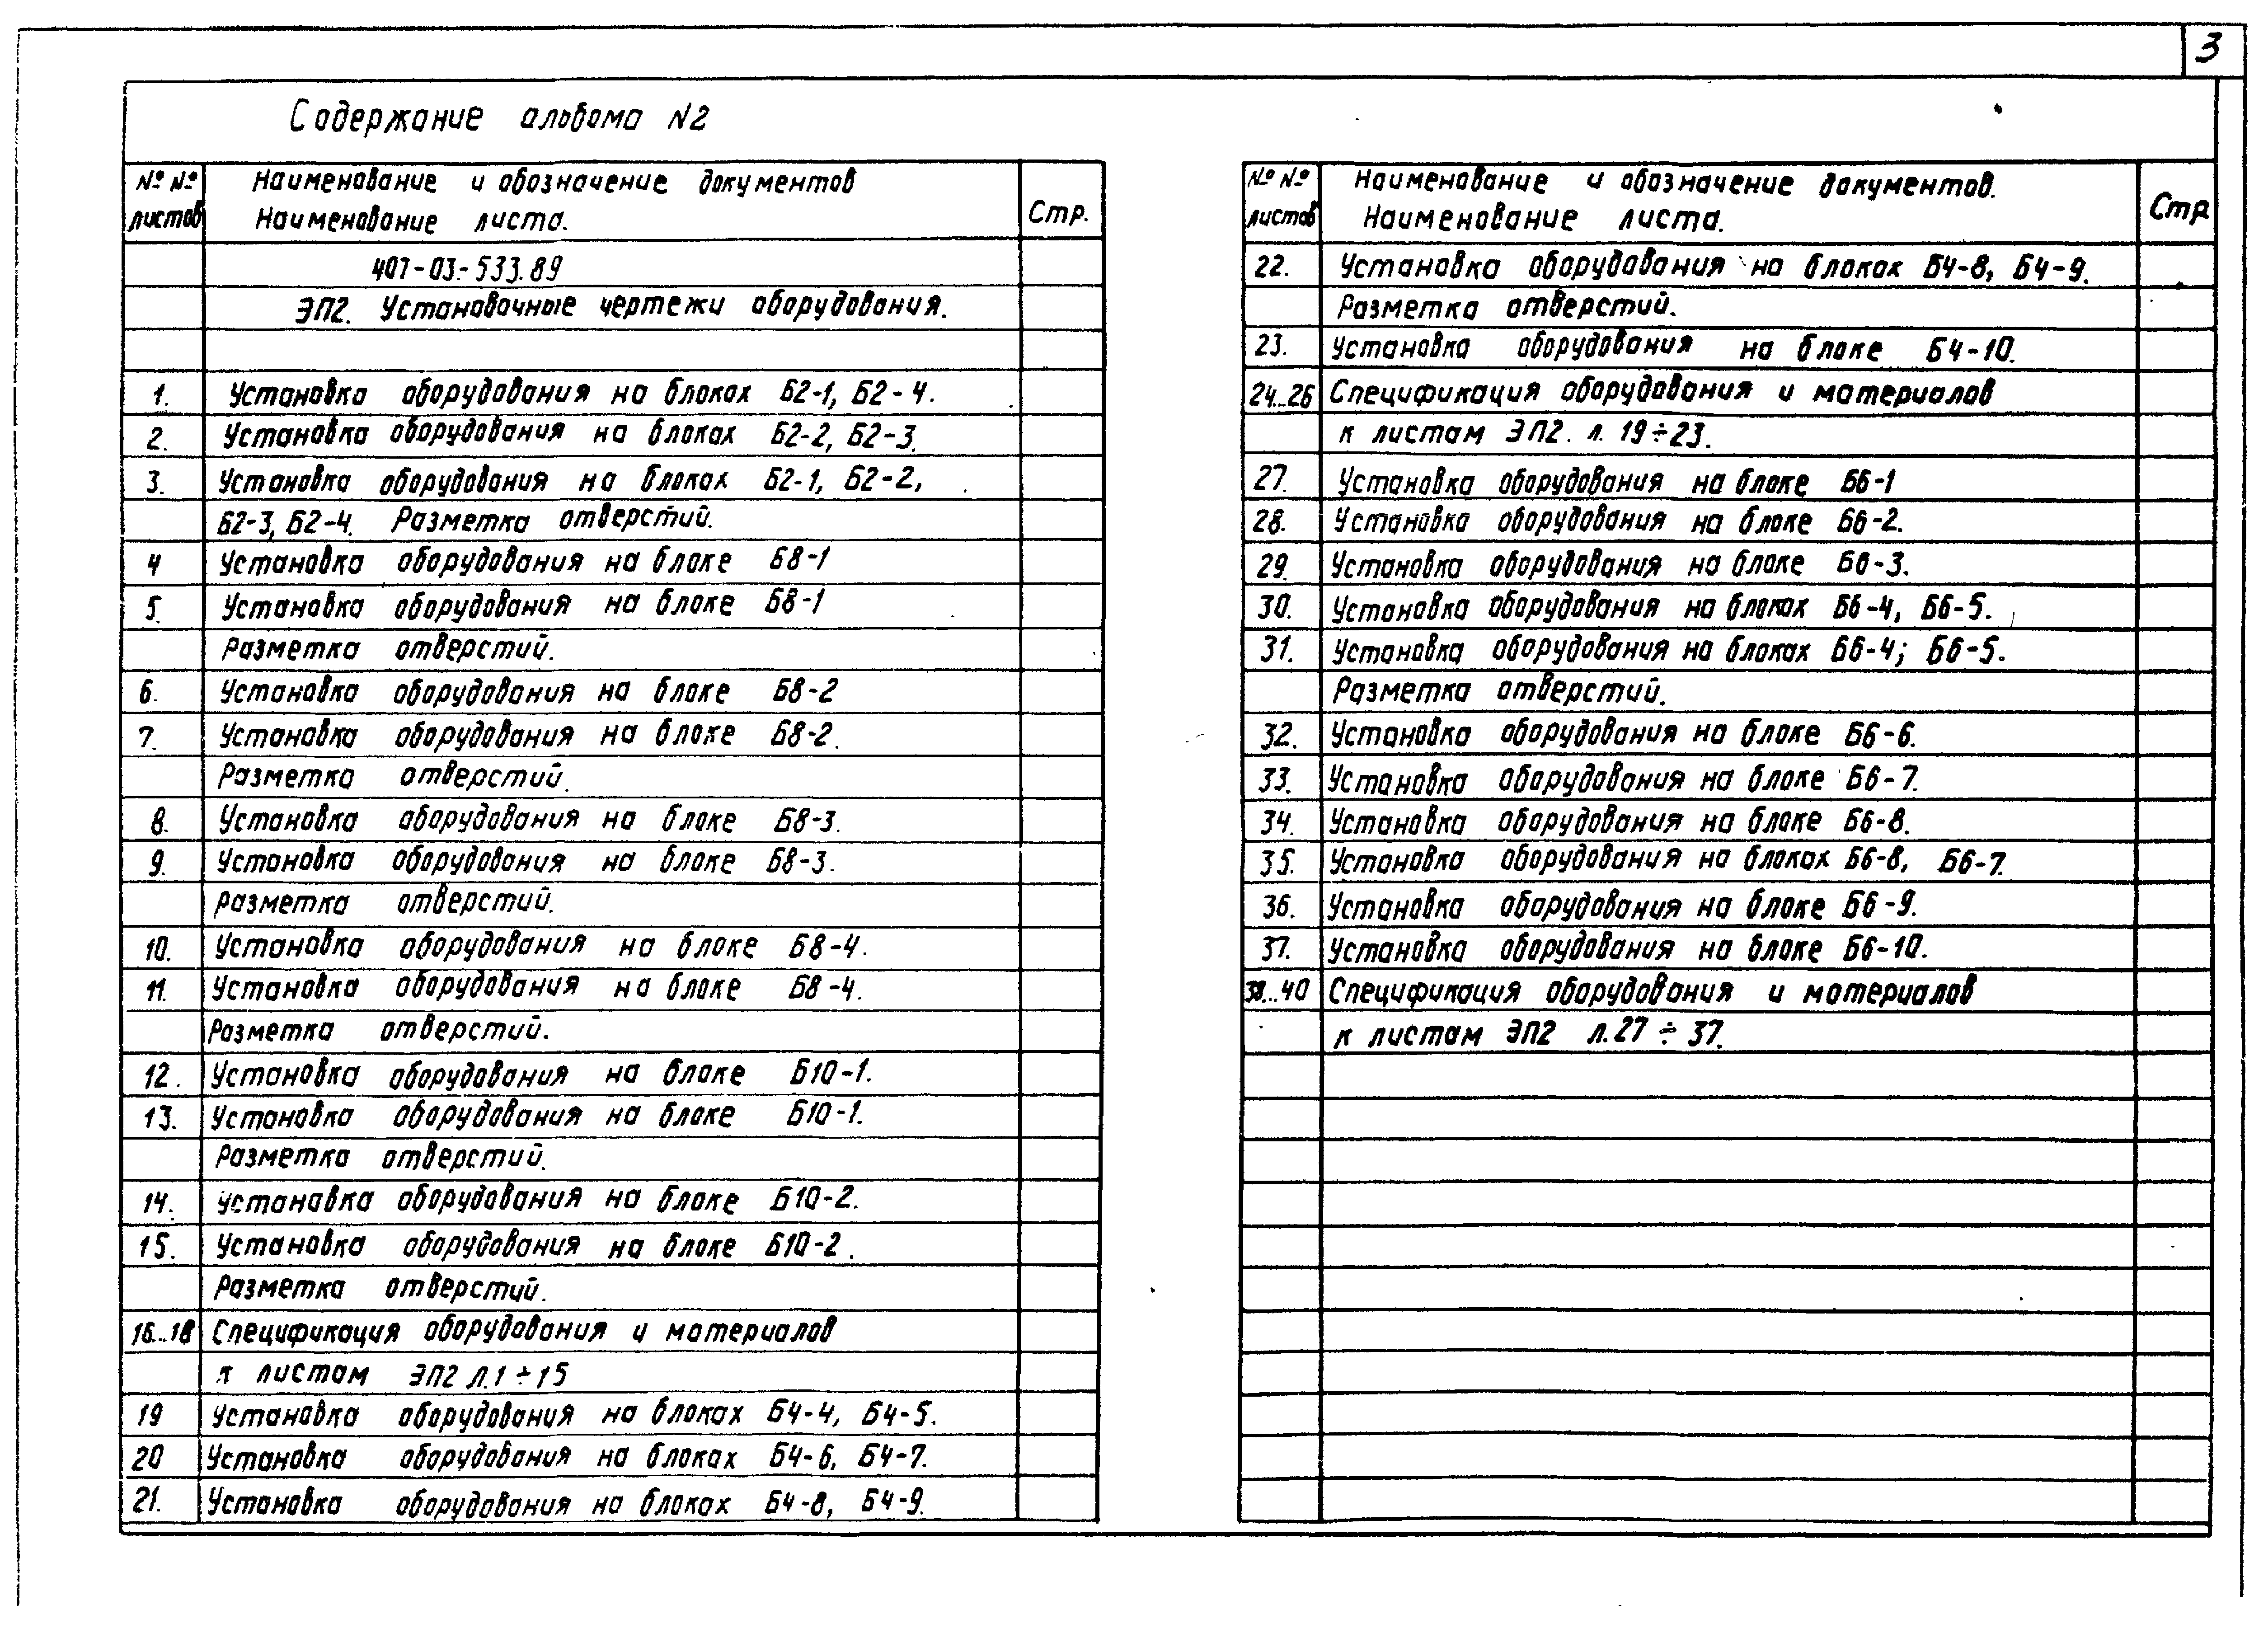 3
Содержание альбома N2
№ №
листов
Наименование и обозначение документов
Наименование листа.
Стр.
407-03-533.89
ЭП2. Установочные чертежи оборудования.
1. Установка оборудования на блоках Б2-1, Б2-4.
2. Установка оборудования на блоках Б2-2, Б2-3.
3. Установка оборудования на блоках Б2-1, Б2-2,
Б2-3, Б2-4. Разметка отверстий.
4 Установка оборудования на блоке Б8-1
5. Установка оборудования на блоке Б8-1
Разметка отверстий.
6. Установка оборудования на блоке Б8-2
7. Установка оборудования на блоке Б8-2.
Разметка отверстий.
8. Установка оборудования на блоке Б8-3.
9. Установка оборудования на блоке Б8-3.
Разметка отверстий.
10. Установка оборудования на блоке Б8-4.
11. Установка оборудования на блоке Б8-4.
Разметка отверстий.
12. Установка оборудования на блоке Б10-1.
13. Установка оборудования на блоке Б10-1.
Разметка отверстий.
14. Установка оборудования на блоке Б10-2.
15. Установка оборудования на блоке Б10-2.
Разметка отверстий.
16...18 Спецификация оборудования и материалов
к листам ЭП2 Л.1÷15
19 Установка оборудования на блоках Б4-4, Б4-5.
20 Установка оборудования на блоках Б4-6, Б4-7.
21. Установка оборудования на блоках Б4-8, Б4-9.
№ №
листов
Наименование и обозначение документов.
Наименование листа.
Стр
22. Установка оборудования на блоках Б4-8, Б4-9.
Разметка отверстий.
23. Установка оборудования на блоке Б4-10.
24...26 Спецификация оборудования и материалов
к листам ЭП2. л. 19÷23.
27. Установка оборудования на блоке Б6-1
28. Установка оборудования на блоке Б6-2.
29. Установка оборудования на блоке Б6-3.
30. Установка оборудования на блоках Б6-4, Б6-5.
31. Установка оборудования на блоках Б6-4; Б6-5.
Разметка отверстий.
32. Установка оборудования на блоке Б6-6.
33. Установка оборудования на блоке Б6-7.
34. Установка оборудования на блоке Б6-8.
35. Установка оборудования на блоках Б6-8, Б6-7.
36. Установка оборудования на блоке Б6-9.
37. Установка оборудования на блоке Б6-10.
38...40 Спецификация оборудования и материалов
к листам ЭП2 л.27÷37.